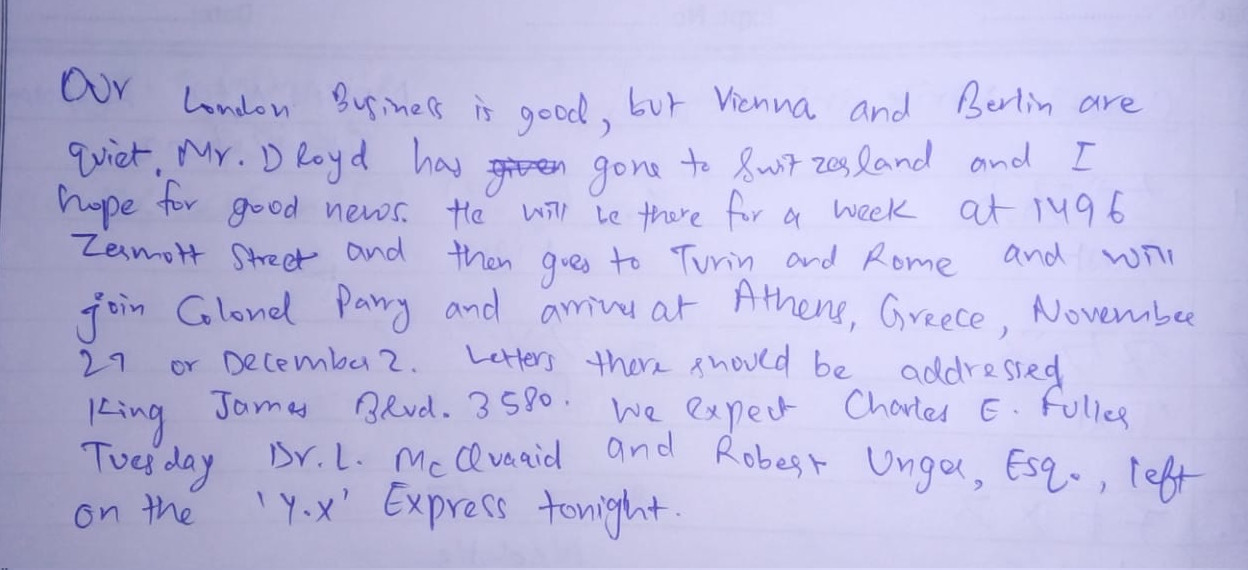 Our London Business is good, but Vienna and Berlin are
quiet. Mr. D Royd has given gone to Switzerland and I
hope for good news. He will be there for a week at 1496
Zermott Street and then goes to Turin and Rome and will
join Colonel Parry and arrives at Athens, Greece, November
27 or December 2. Letters there should be addressed
King James Blvd. 3580. We expect Charles E. Fuller
Tuesday Dr. L. McQuaaid and Robert Unger, Esq., left
on the 'Y.X' Express tonight.